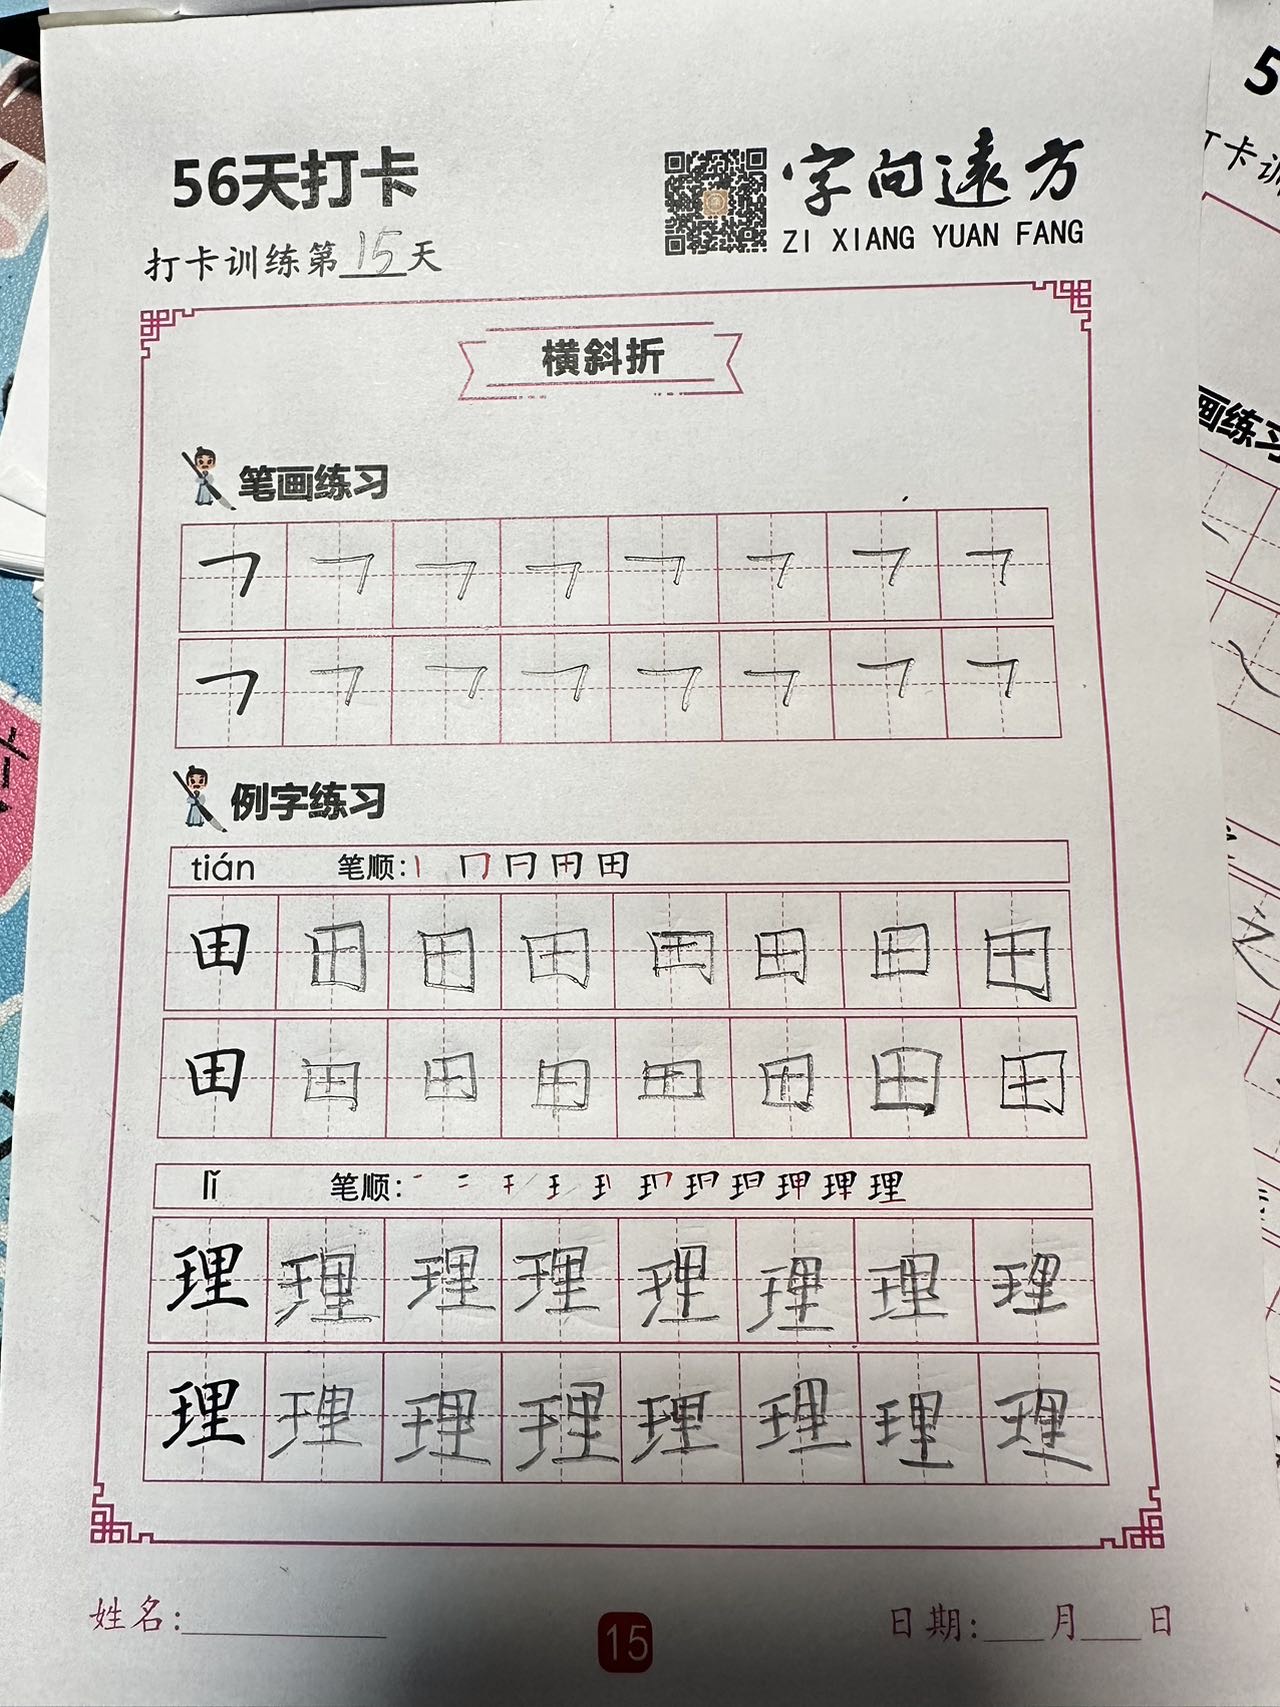 56天打卡
字向遠方
ZI XIANG YUAN FANG
打卡训练第15天
横斜折
笔画练习
㇕ ㇕ ㇕ ㇕ ㇕ ㇕ ㇕ ㇕
㇕ ㇕ ㇕ ㇕ ㇕ ㇕ ㇕ ㇕
例字练习
tián 笔顺:
田 田 田 田 田 田 田 田
田 田 田 田 田 田 田 田
lǐ 笔顺:
理 理 理 理 理 理 理 理
理 理 理 理 理 理 理 理
姓名:
15
日期: 月 日
5
打卡训
画练习